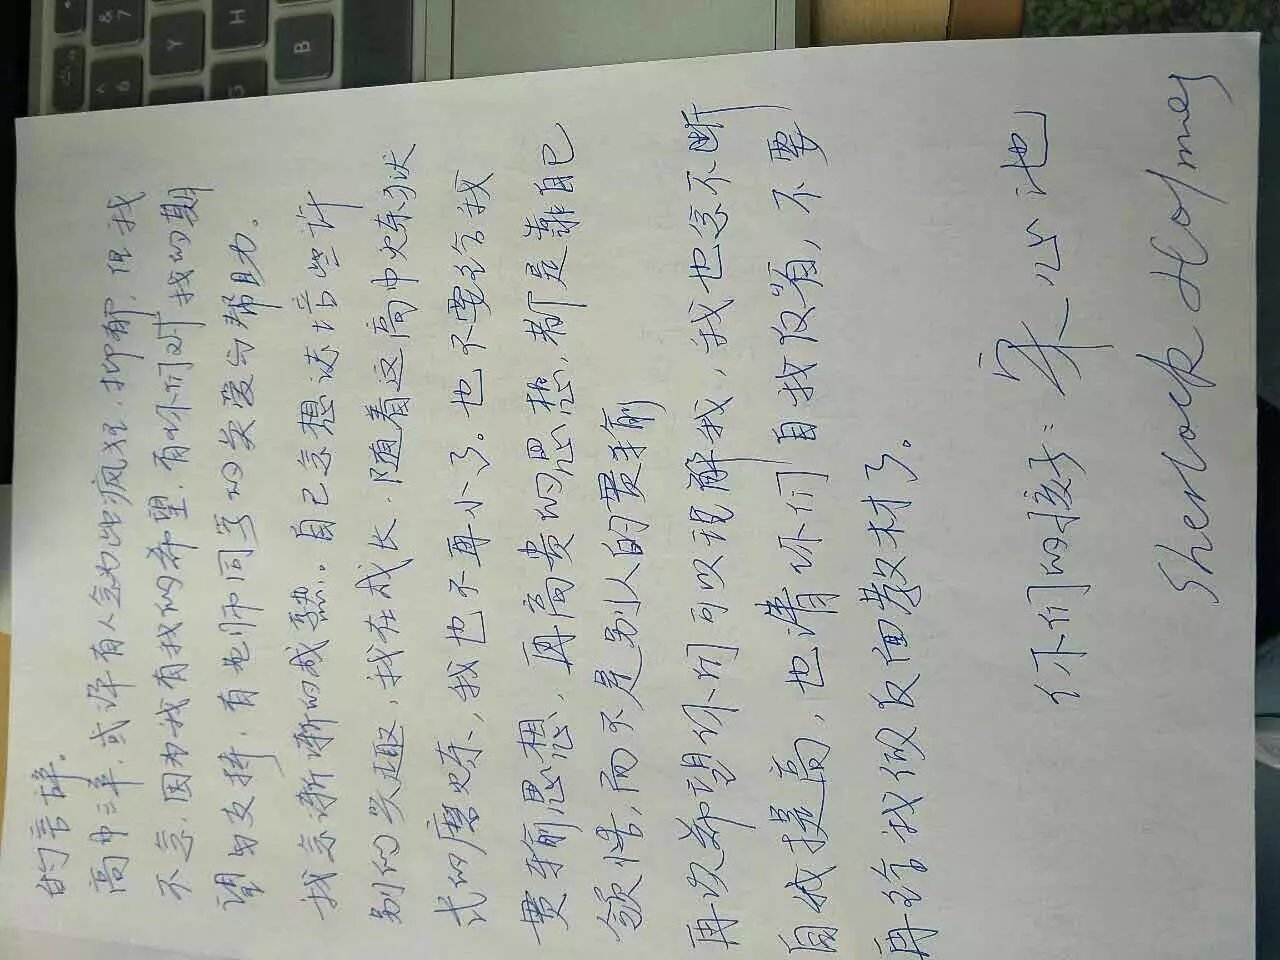 的言辞。
高中三年,或许有人会为此疯狂,抑郁,但我
不会,因为我有我的希望,有你们对我的期
望与支持,有老师同学的关爱与帮助。
我会渐渐的成熟..自己会想法培些许
别的兴趣,我在成长,随着这高中炼狱
式的磨炼,我也不再小了。也不要给我
贯输思想,再高贵的思想,都是靠自己
领悟,而不是别人的贯输
再次希望你们可以理解我,我也会不断
自我提高,也请你们自我反省,不要
再给我做反面教材了。
你们的孩子:宋心池
Sherlock Holmes
Y
H
B
&
7
^
6